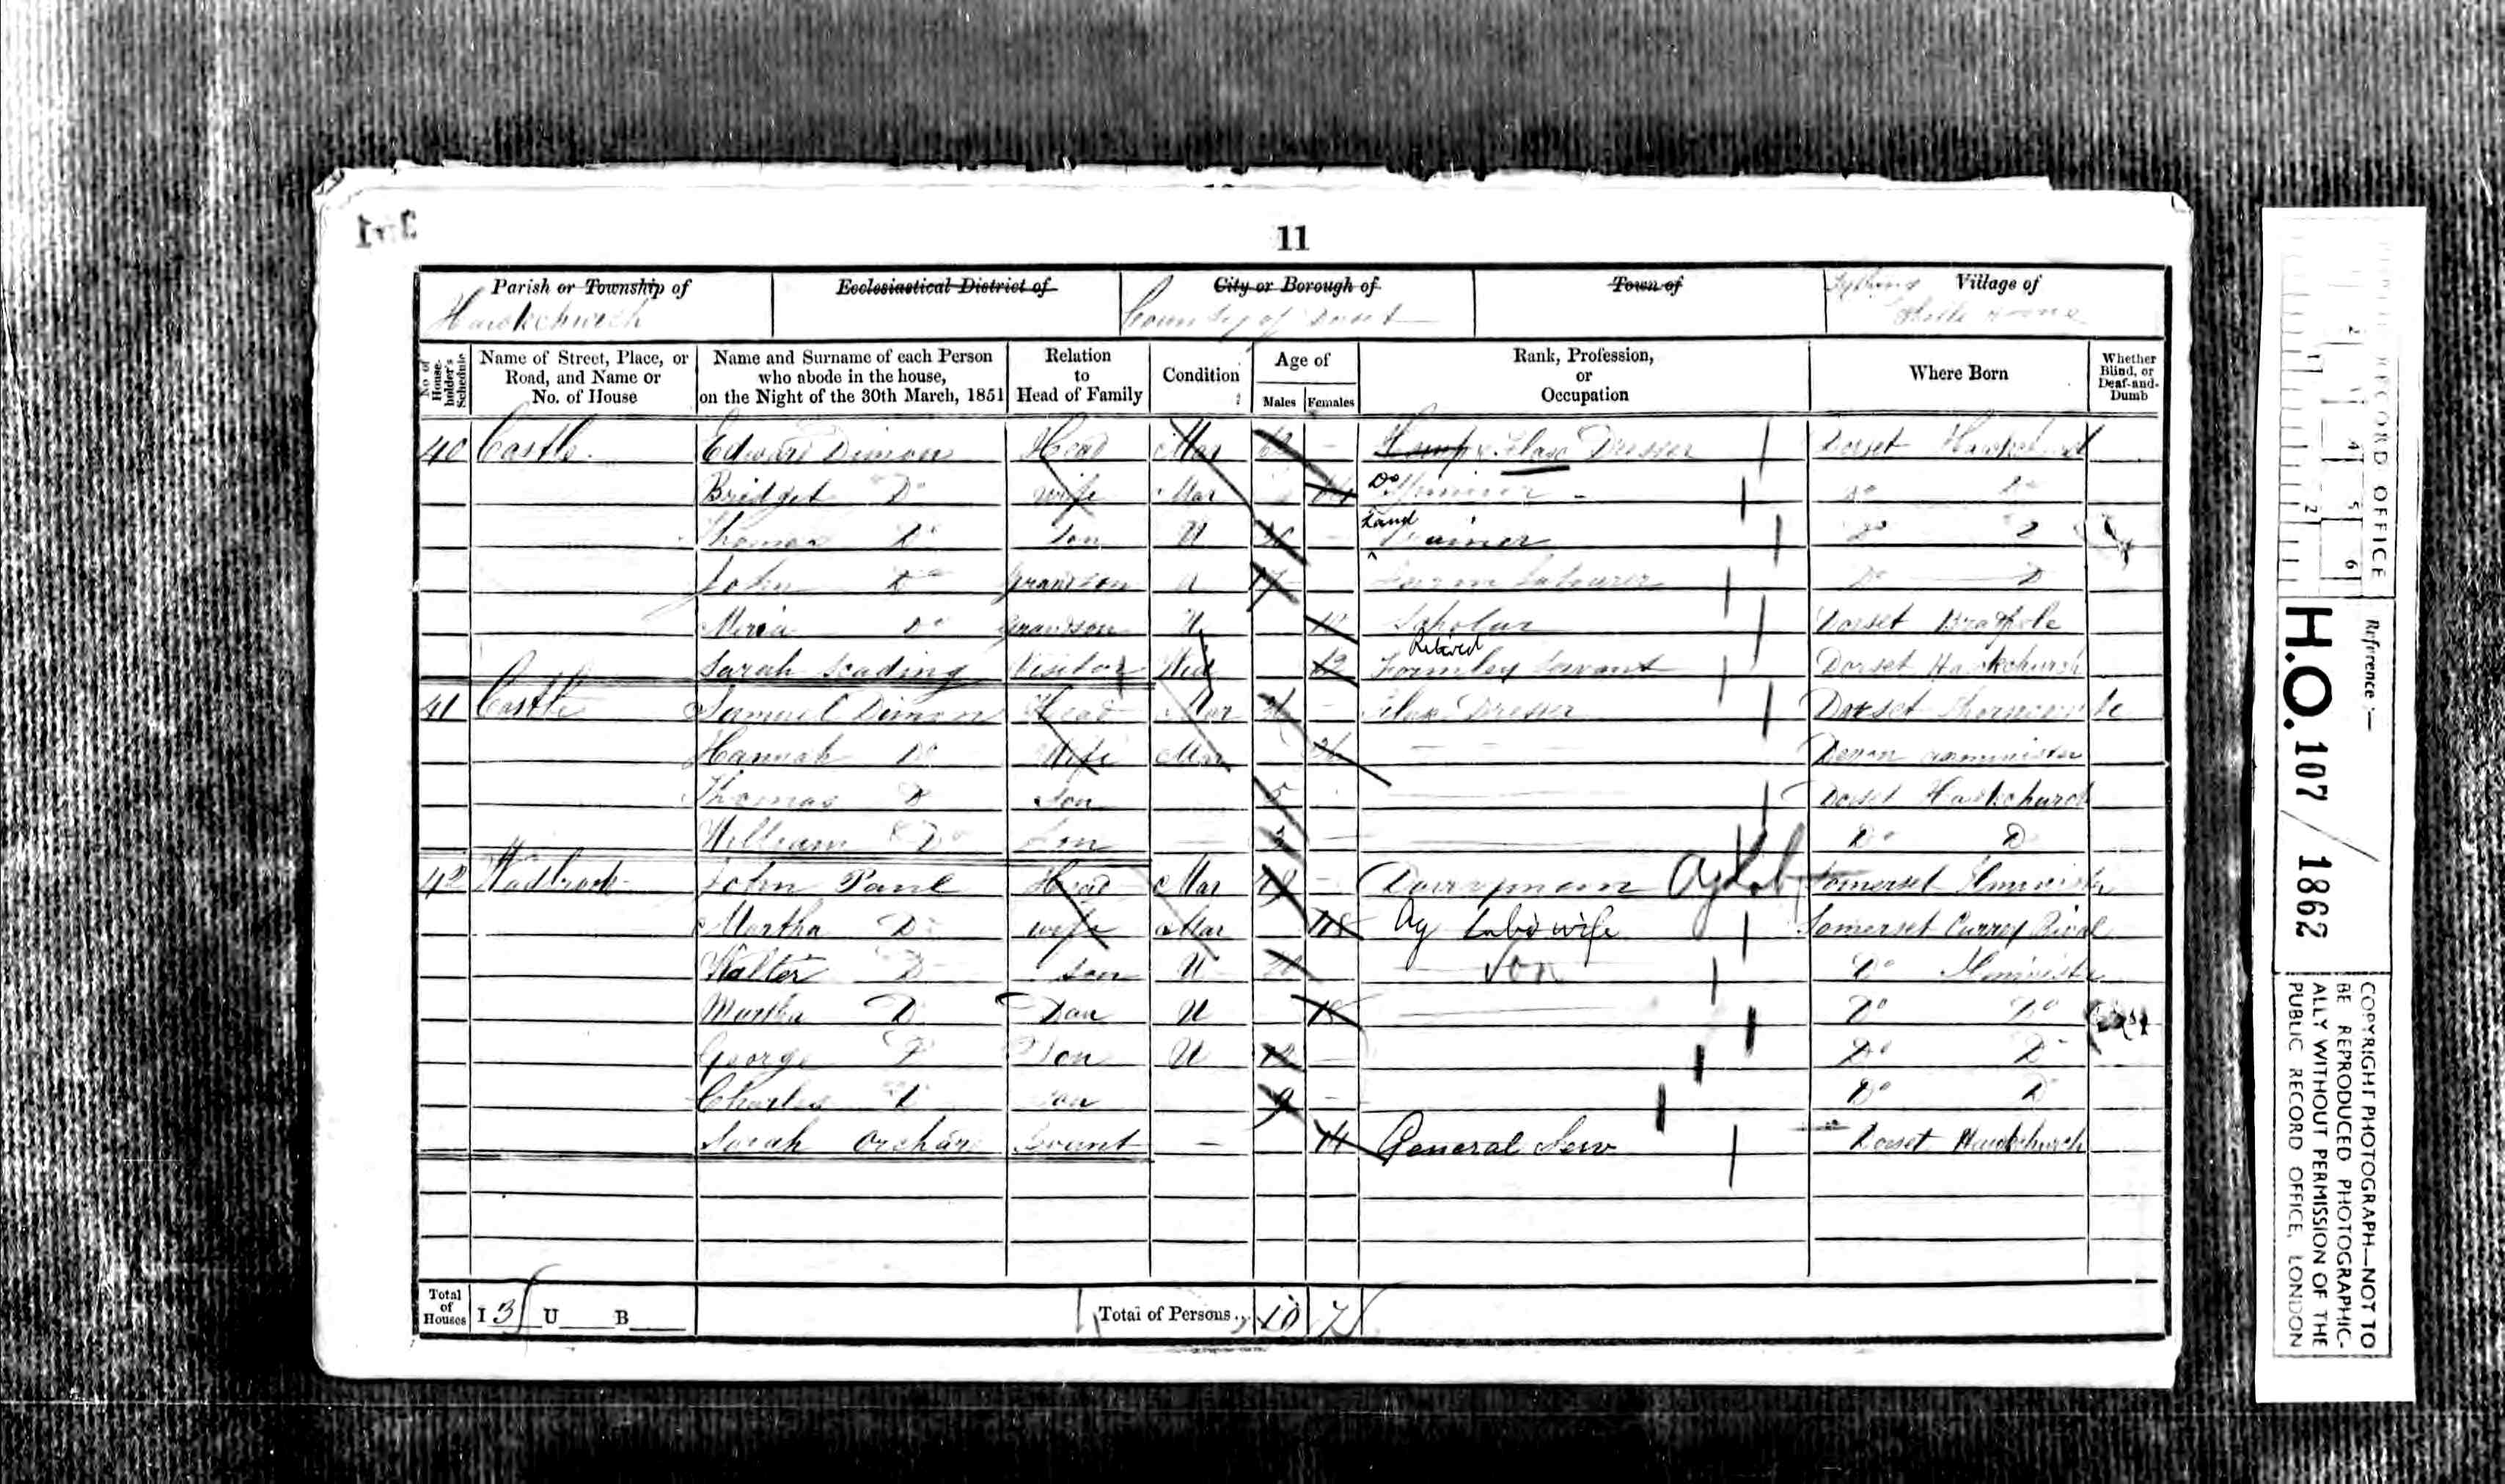 11
Parish or Township of Ecclesiastical District of City or Borough of Town of Village of
Hawkchurch County of Dorset
No. of House-holder's Schedule Name of Street, Place, or Road, and Name or No. of House Name and Surname of each Person who abode in the house, on the Night of the 30th March, 1851 Relation to Head of Family Condition Age of Males Females Rank, Profession, or Occupation Where Born Whether Blind, or Deaf-and-Dumb
40 Castle Edward Dimon Head Mar Hemp & Flax Dresser Dorset Hawkchurch
Bridget Do wife Mar Do Spinner Do Do
Thomas Do Son U Land Do Do
John Do Grandson U 17 Farm Labourer Do D
Do Grandson U 12 Scholar Dorset
Sarah Visitor Wid Formley Servant Dorset Hawkchurch
41 Castle Samuel Dimon Head Mar Flax Dresser Dorset Thorncombe
Hannah Do Wife Mar Devon Axminister
Thomas D Son 5 Dorset Hawkchurch
William Do Son 3 Do D
42 Wadbrook John Paul Head Mar Dairyman Ag Lab Somerset Ilminister
Martha Do wife Mar 48 Ag Labs wife Somerset Curry Rival
Walter D Son U 20 Son Do Ilminister
Martha D Dau U 18 Do Do
George D Son U 12 Do D
Charles D Son 9 Do D
Sarah Orchard Servant 14 General Serv Dorset Hawkchurch
Total of Houses I 3 U B Total of Persons 10 7
PUBLIC RECORD OFFICE
1 2
1 2 3 4 5 6
Reference:—
H.O. 107 / 1862
COPYRIGHT PHOTOGRAPH—NOT TO
BE REPRODUCED PHOTOGRAPHIC-
ALLY WITHOUT PERMISSION OF THE
PUBLIC RECORD OFFICE, LONDON